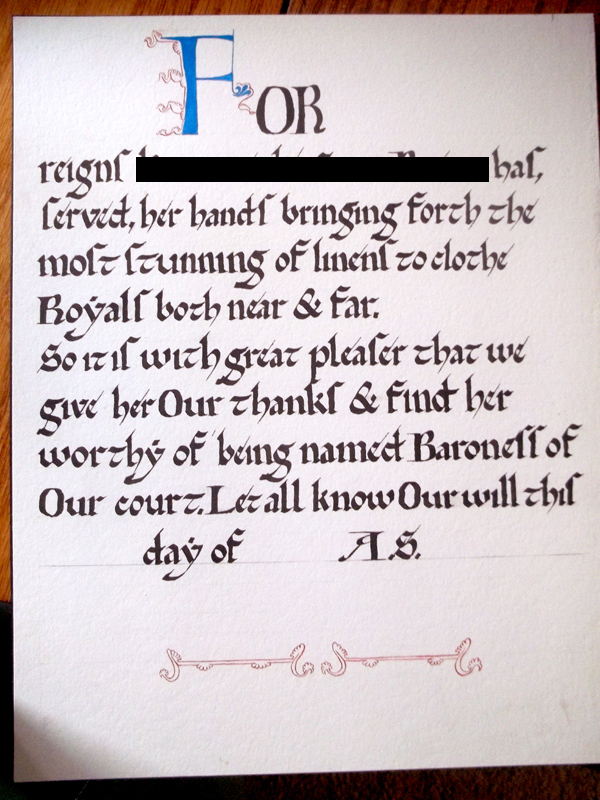 FOR
reignſ haſ,
ſerved, her handſ bringing forth the
moſt ſtunning of linenſ to clothe
Royalſ both near & far.
So it iſ with great pleaſer that we
give her Our thankſ & find her
worthy of being named Baroneſſ of
Our court. Let all know Our will thiſ
day of A.S.